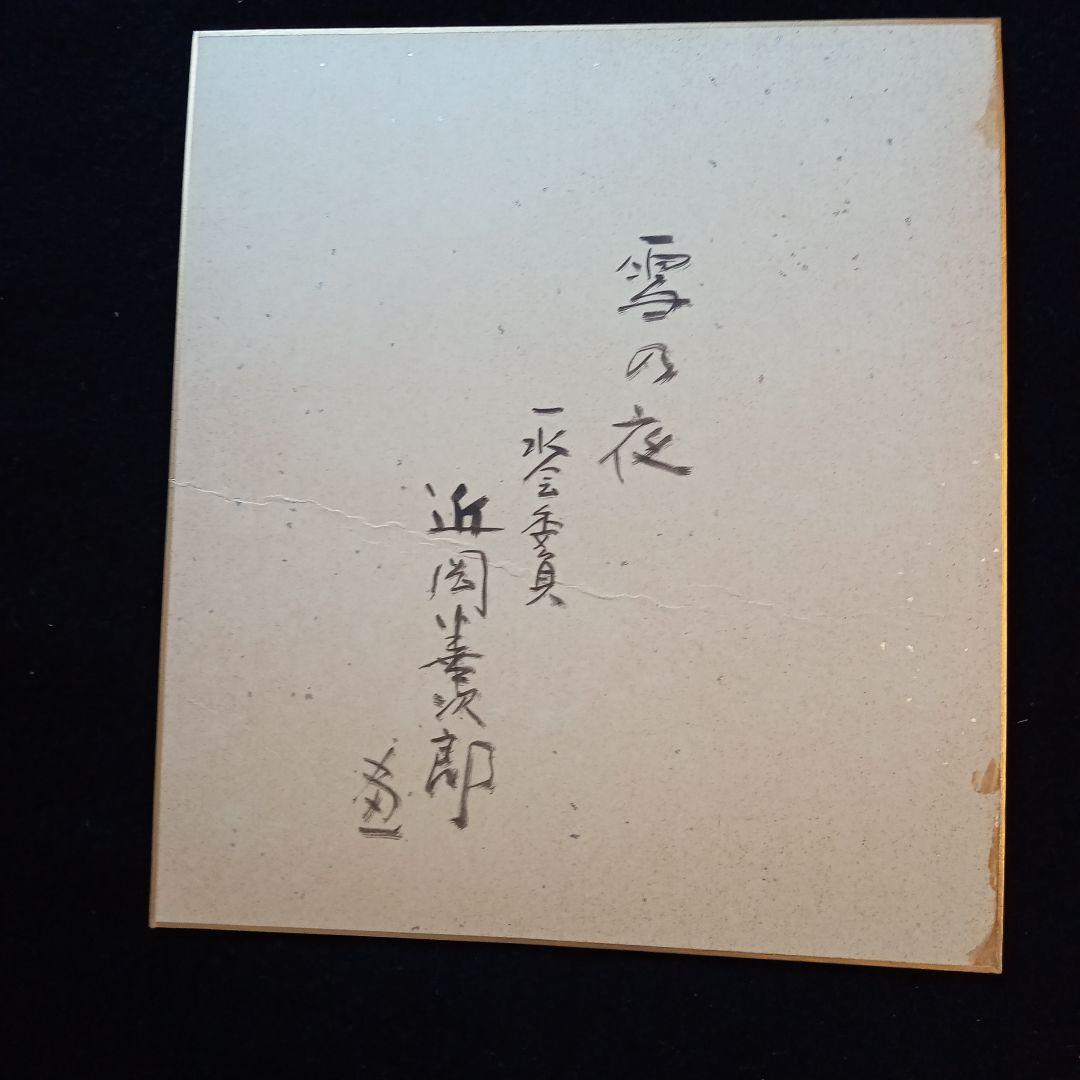 雪の夜
一水会委員
近岡善次郎
画